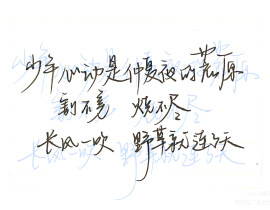 少年心动是仲夏夜的荒原
割不完 烧不尽
长风一吹 野草就连了天